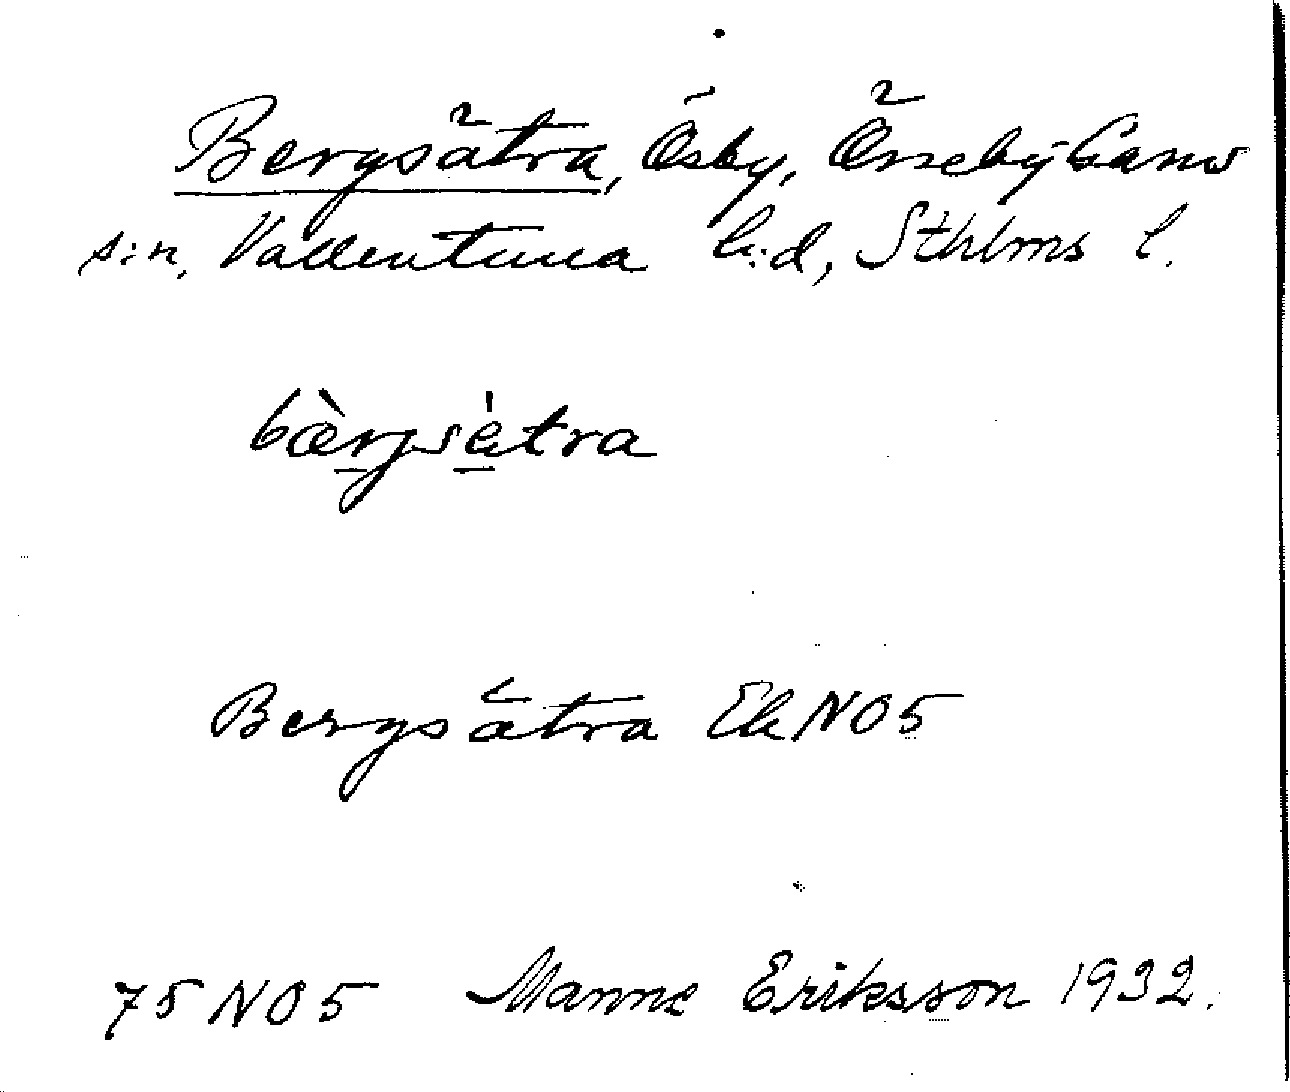 Bergsätra, Ösby, Össeby Garns
s:n, Vallentuna h:d, Sthlms l.
bæ̀rjsètra
Bergsätra Ek NO5
75 NO 5 Manne Eriksson 1932.